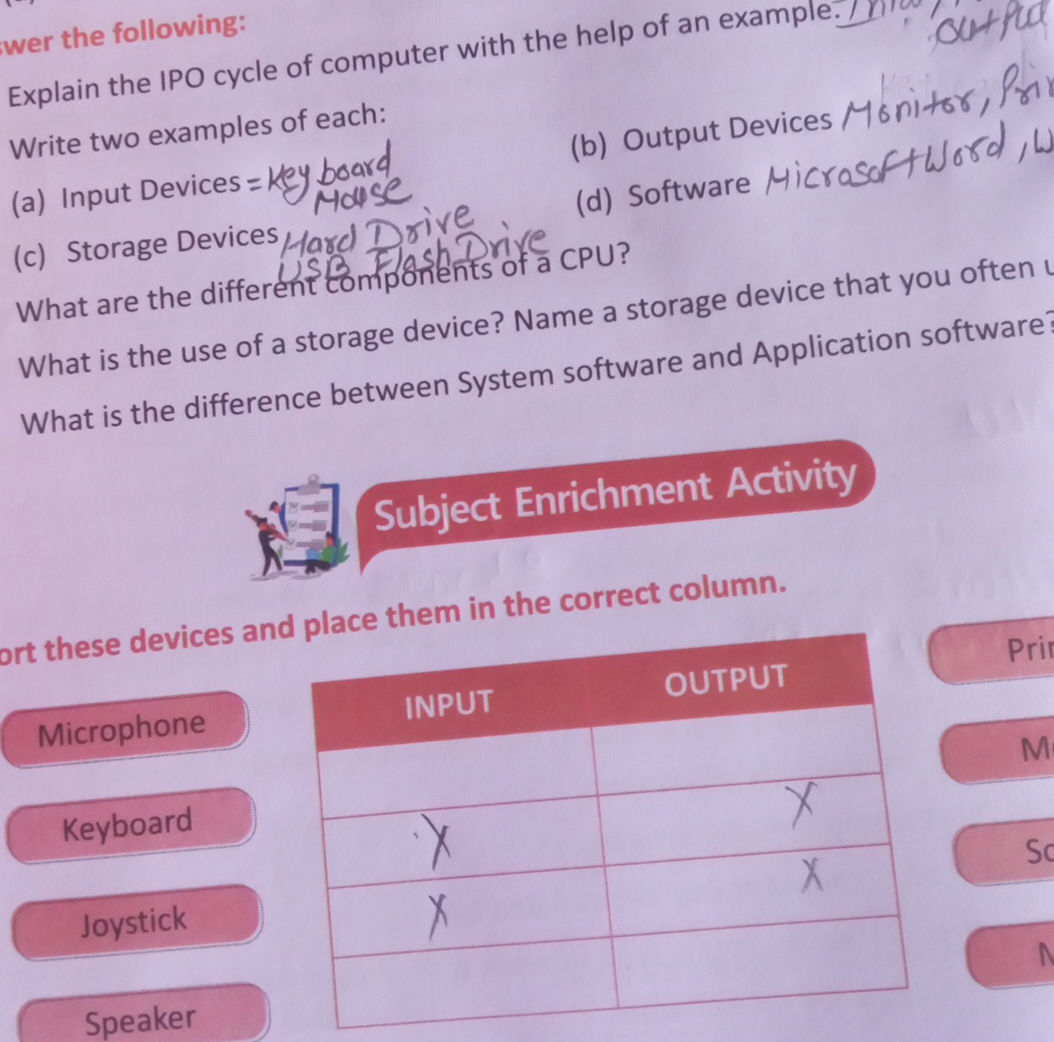 the following:
Explain the IPO cycle of computer with the help of an example.
output
Write two examples of each:
(a) Input Devices = Key board
Mouse
(b) Output Devices Monitor,
(c) Storage Devices Hard Drive
USB Flash Drive
(d) Software Microsoft Word,
What are the different components of a CPU?
What is the use of a storage device? Name a storage device that you often
What is the difference between System software and Application software?
Subject Enrichment Activity
these devices and place them in the correct column.
INPUT OUTPUT
Microphone
Keyboard
Joystick
Speaker
X X
X X